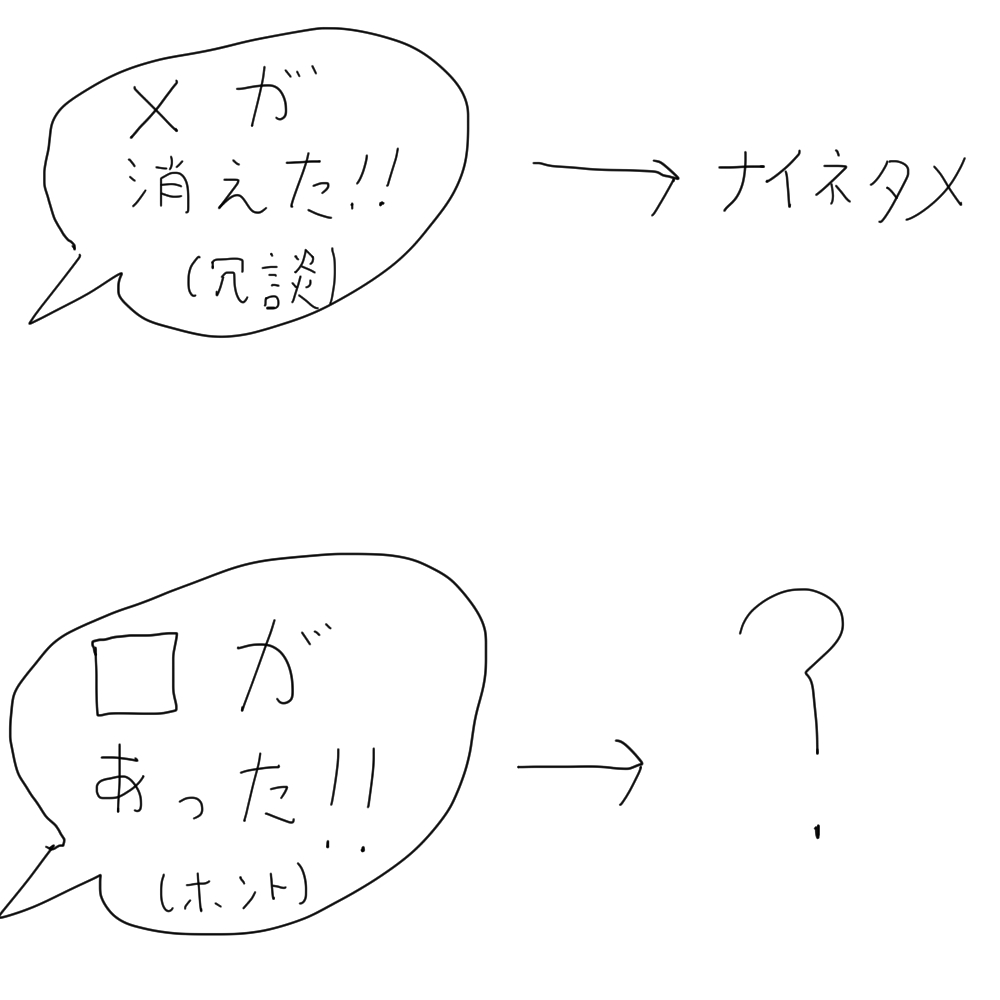 ×が
消えた!!
(冗談)
→ ナイネタメ
□が
あった!!
(ホント)
→ ?